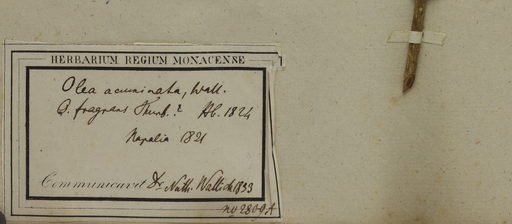 HERBARIUM REGIUM MONACENSE
Olea acuminata, Wall.
O. fragrans Thunb.? Hb. 1824
Napalia 1821
Communicavit Dr. Nath. Wallich 1833
no 2809A